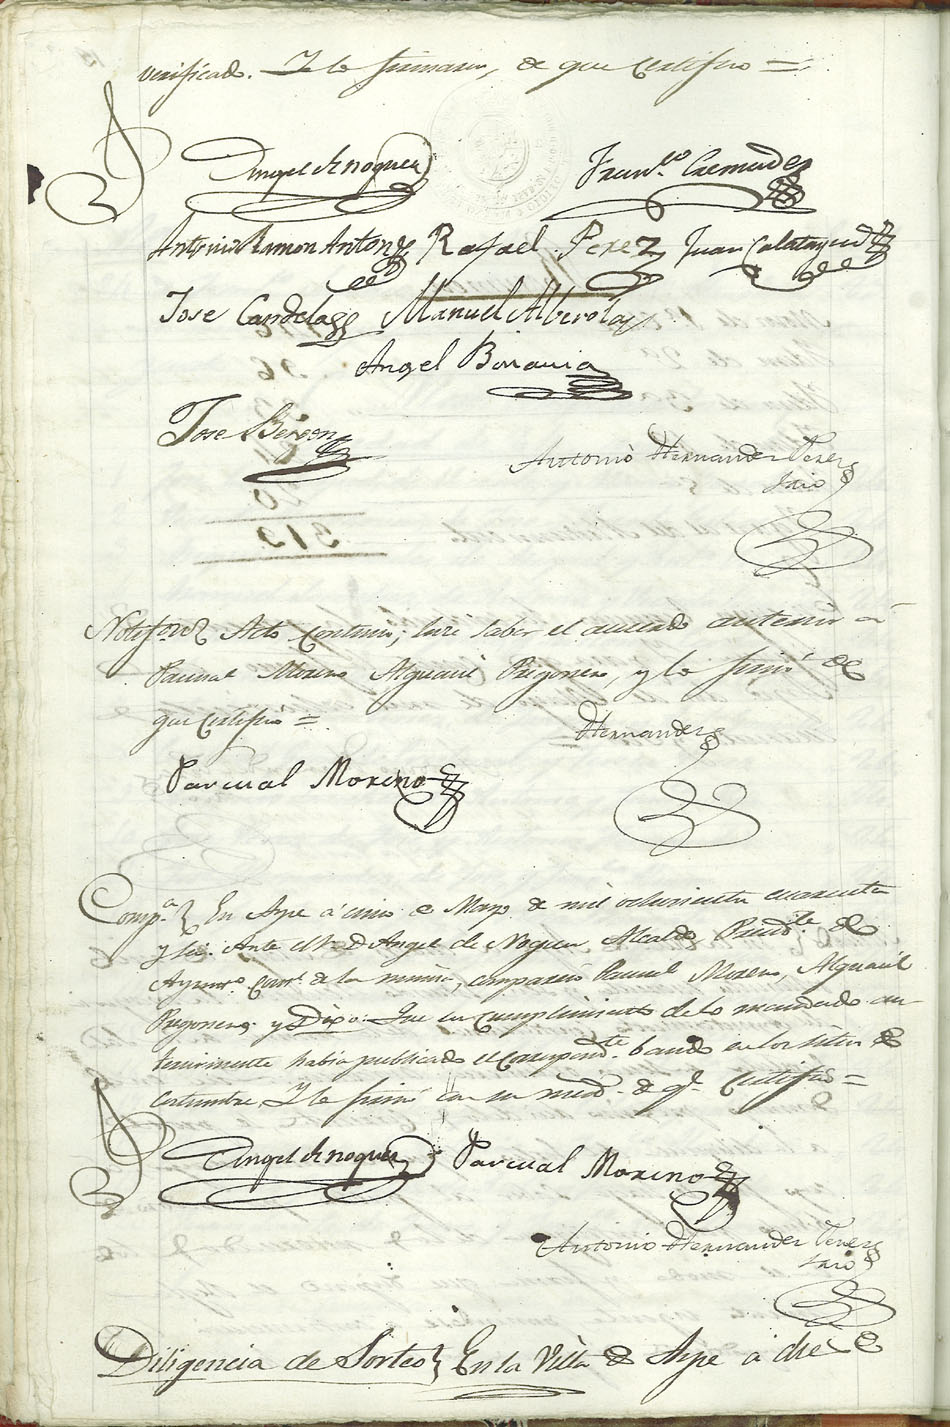 verificado. Y lo firmaron, de que certifico =
Angel de noguera Fran.co Cremades
Antonio Ramon Antonez Rafael Perez Juan Calatayud
Jose Candela Manuel Alberola
Angel Bonavia
Jose Beren
Antonio Hernandez Perez
Srio
Notifon Acto continuo, hice saber el acuerdo anterior á
Pascual Moreno Alguacil Pregonero, y lo firmó de
que certifico =
Hernandez
Pascual Moreno
Comp.a En Aspe á cinco de Mayo de mil ochocientos cuarenta
y seis. Ante el Sr. D. Angel de Noguera Alcalde Presid.te del
Ayunt.o Const. de la misma, comparecio Pascual Moreno, Alguacil
Pregonero y Dixo: Que en cumplimiento de lo mandado an-
teriormente habia publicado el correspond.te bando en los sitios de
costumbre. Y lo firmó con su merd. de q.e Certifico =
Angel de noguera Pascual Moreno
Antonio Hernandez Perez
Srio
Diligencia de Sorteo En la Villa de Aspe á diez